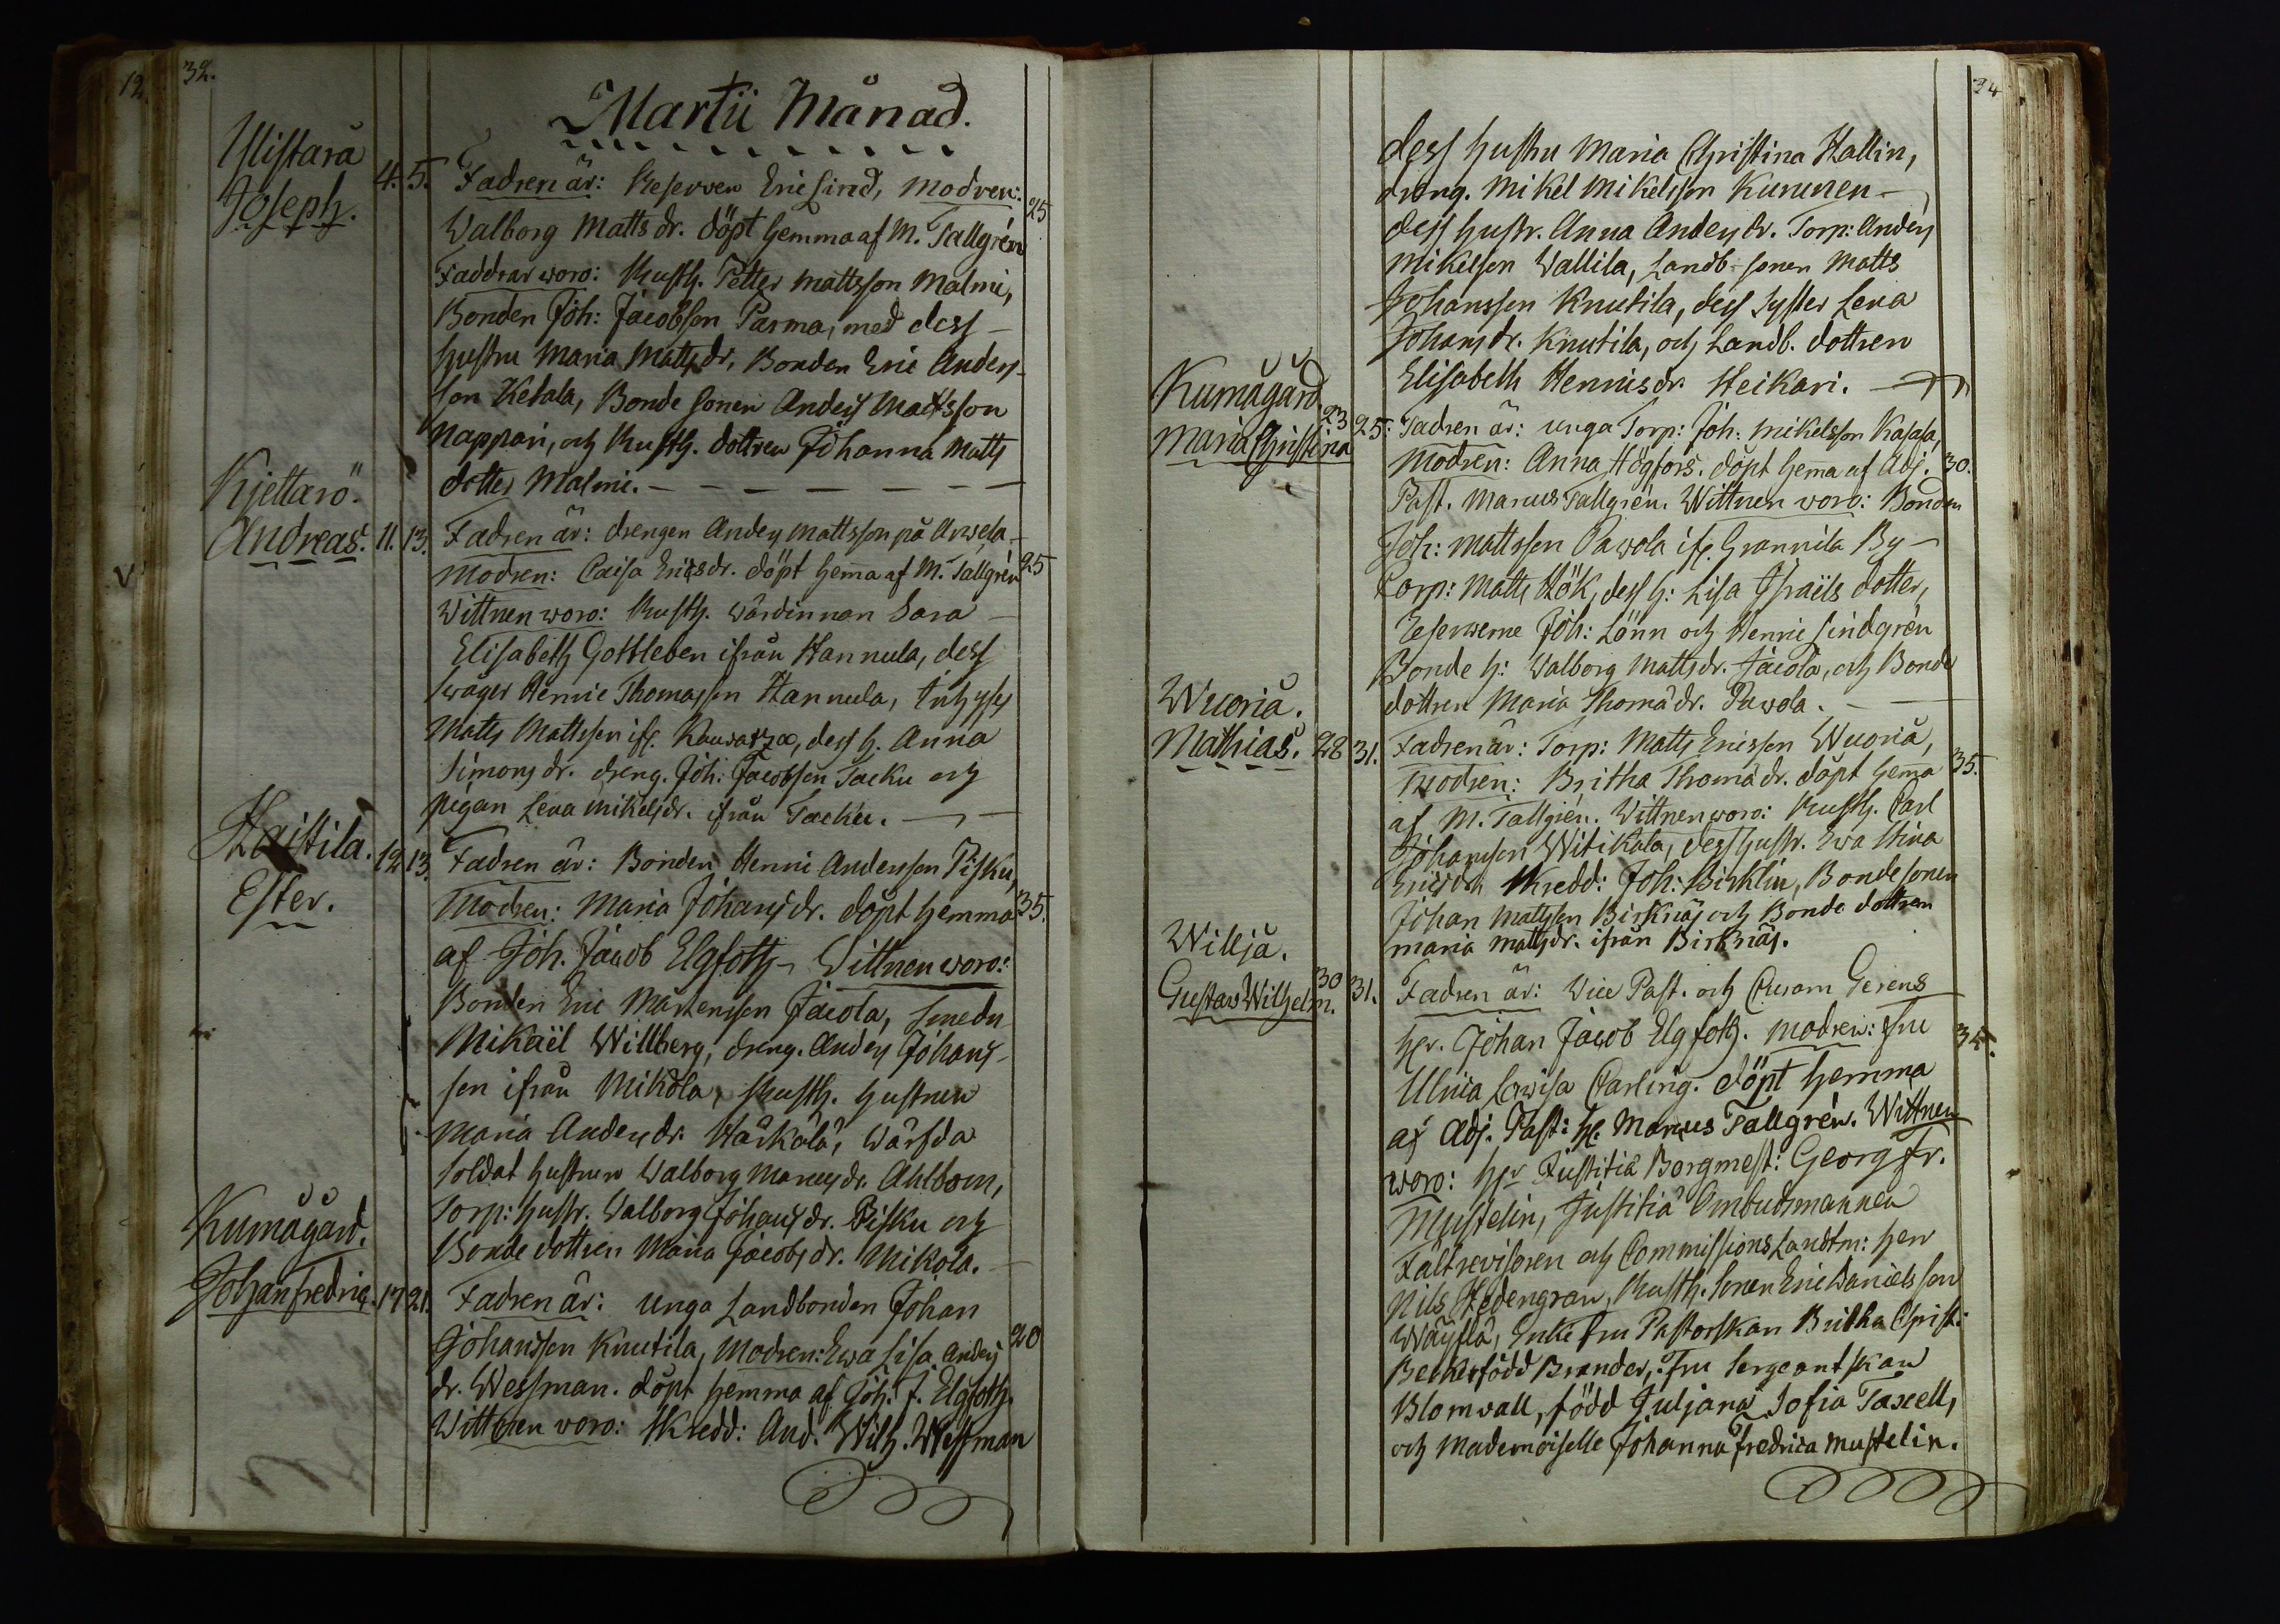 12.
32.
Martii Månad.
Ylistara
Joseph.
4. 5. Fadren är: Reserven Eric Lind, modren: 25
Walborg Matts dr. döpt hemma af M. Tallgrén
Faddrar woro: Rusth. Petter Mattsson Malmi,
Bonden Joh: Jacobsson Parma, med dess
hustru Maria Matts dr, Bonden Eric Anders-
son Ketala, Bonde sonen Anders Mattsson
Nappari, och Rusth. dottren Johanna Matts
dotter Malmi.
Kjettarö.
Andreas. 11. 13. Fadren är: drengen Anders Mattsson på
Modren: Caisa Erics dr. döpt hem̄a af M. Tallgrén 25
Wittnen woro: Rusth. wärdinnan Sara
Elisabeth Gottleben ifrån Hannula, dess
swåger Henric Thomasson Hannula,
Matts Mattsson ifr. dess h. Anna
Simons dr. dreng. Joh: Jacobsson Tacku och
pigan Lena Mikels dr. ifrån Tacku.
Haistila.
Ester.
12 13. Fadren är: Bonden Henric Andersson Pisku,
Modren: Maria Johans dr. döpt hemma 35.
af Joh. Jacob Elgfoth. Wittnen woro:
Bonden Eric Mårtensson Jacola, smeden
Mikaël Willberg, dreng. Anders Johans-
son ifrån Mikola, Rusth. hustrun
Maria Anders dr. Härkälä, Wärfda
soldat hustrun Walborg Marcus dr. Ahlbom,
Torp: hustr. Walborg Johans dr. Pisku och
Bonde dottren Maria Jacobs dr. Mikola.
Kumågård.
Johan Fredric. 17 21. Fadren är: unga Landbonden Johan
Johansson Knutila, Modren: Ewa Lisa Anders 20
dr. Wessman. döpt hemma af Joh. J. Elgfoth.
Wittnen woro: Skredd: And. Wilh. Wessman
34
dess hustru Maria Christina Hallin,
dreng. Mikel Mikelsson Kuminen
dess hustr. Anna Anders dr. Torp: Anders
Mikelsson Wallila, Landb. sonen Matts
Johansson Knutila, dess syster Lena
Johans dr. Knutila, och Landb. dottren
Elisabeth Henrics dr. Heikari.
Kumågård
Maria Christina
23 25. Fadren är: unga Torp: Joh: Mikelsson Kasasa,
Modren: Anna Högfors. döpt hem̄a af Adj. 30.
Past. Marcus Tallgrén. Wittnen woro: Bonden
Joh: Mattsson Pawola ifr. Grannila By
Torp: Matts Hök, dess h: Lisa Israëls dotter,
Reserverne Joh: Lönn och Henric Lindgrén
Bonde h: Walborg Matts dr. Jacola, och Bonde
dottren Maria Thomæ dr. Pawola.
Wuoria.
Mathias. 28 31. Fadren är: Torp: Matts Ericsson Wuoria,
Modren: Britha Thomæ dr. döpt hem̄a 35.
af M. Tallgrén. Wittnen woro: Rusth. Carl
Johansson Witikala, dess hustr. Ewa Stina
Erics dr. Skredd: Joh: Birklin, Bonde sonen
Johan Mattsson Birknäs och Bonde dottren
Maria Matts dr. ifrån Birknäs.
Willja.
Gustav Wilhelm. 30 31. Fadren är: Vice Past. och Curam Gerens
Hr. Johan Jacob Elgfoth. Modren: Fru 35.
Ulrica Lovisa Carling. döpt hemma
af Adj. Past: H. Marcus Tallgrén. Wittnen
woro: Hr Justitiæ Borgmest: Georg Fr.
Mustelin, Justitiæ Ombudsmannen
Fältrevisoren och Commissions Landtm: Herr
Nils Hedengran, Rusth. sonen Eric Danielsson
Wäyflä, Enke Fru Pastorskan Britha Christ:
Becker född Brander, Fru Sergeantskan
Blomvall, född Juliana Sofia Taxell,
och Mademoiselle Johanna Fredrica Mustelin.